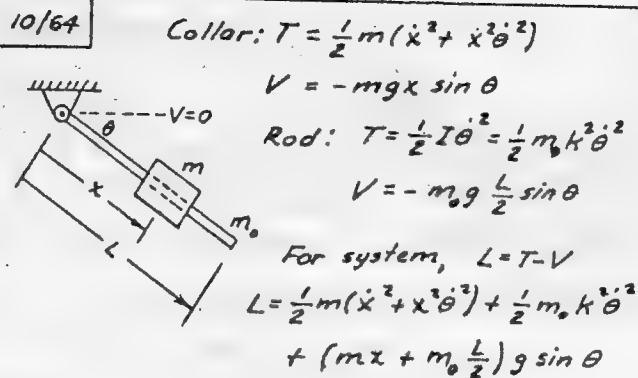 10/64
Collar: T = ½ m(ẋ² + ẋ²θ̇²)
V = -mgx sin θ
V=0
θ
Rod: T = ½ Iθ̇² = ½ m₀ k²θ̇²
m
V = - m₀ g L/2 sin θ
x
m₀
L
For system, L = T-V
L = ½ m(ẋ² + x²θ̇²) + ½ m₀ k²θ̇²
+ (mx + m₀ L/2) g sin θ